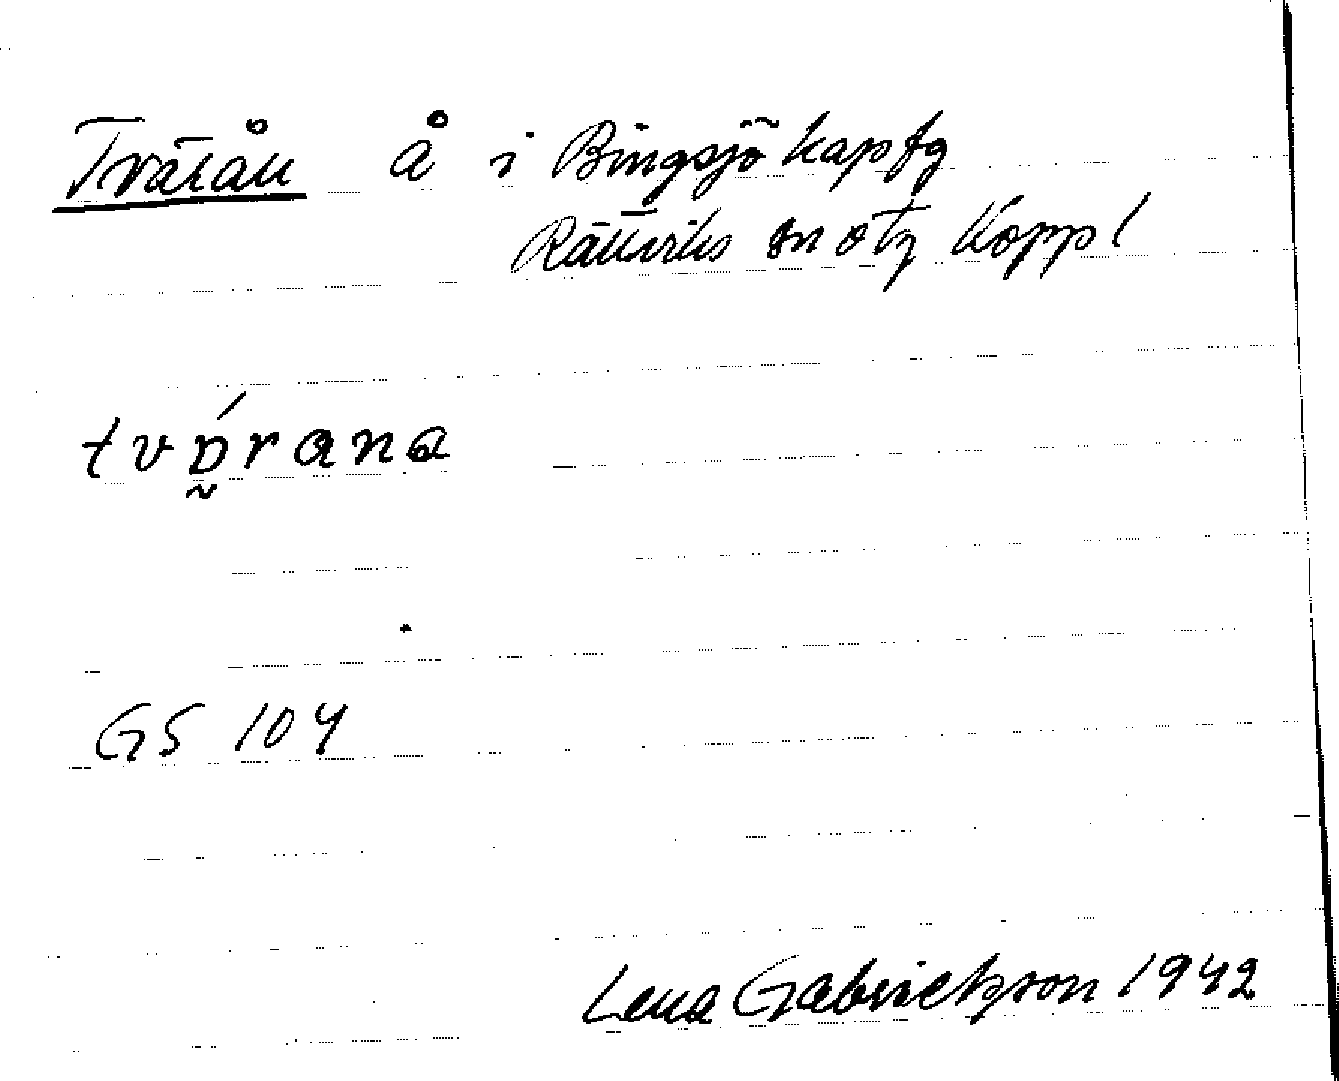 Tvärån å i Bingsjö kapfg
Rättviks sn o tg Koppl
tvɒ̰́rana
GS 104
Lena Gabrielsson 1942